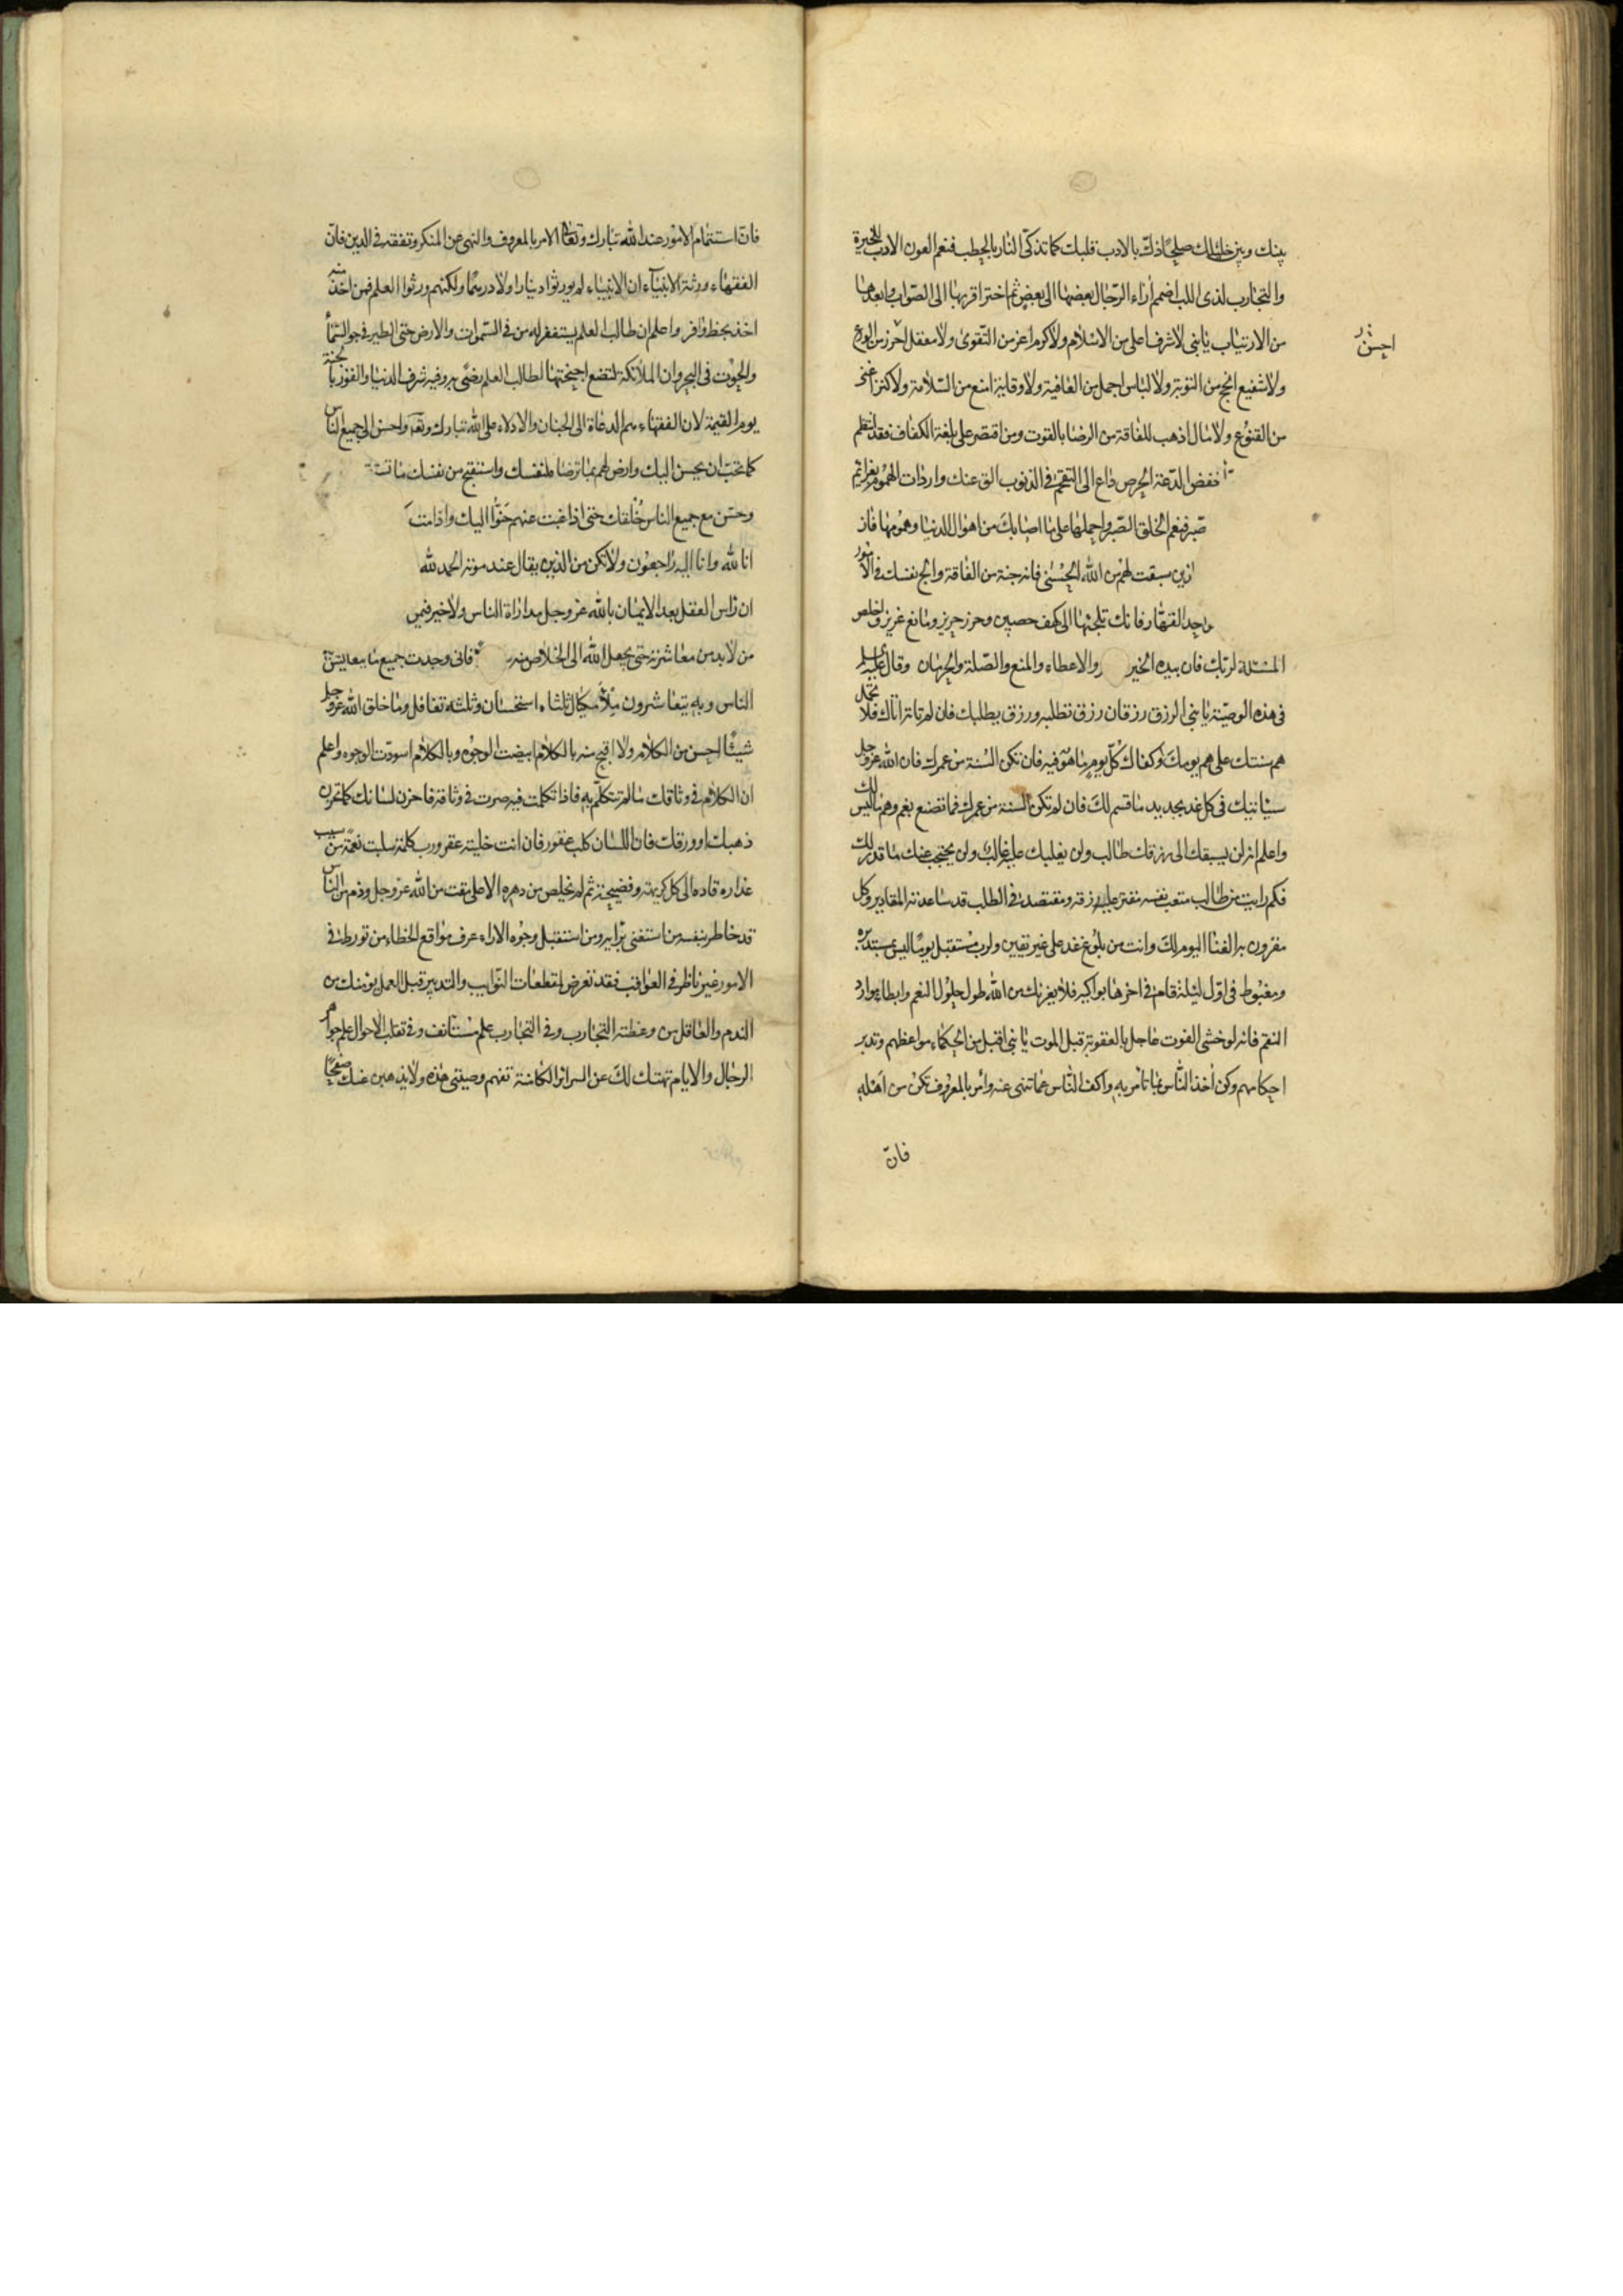 بينك وبين خليلك صلحا ذك بالادب قلبك كما تذكى النار بالحطب فنعم العون الادب للخيرة
والتجارب لذى اللب اضمم اراء الرجال بعضها الى بعض ثم اختر اقربها الى الصواب وابعدها
من الارتياب يا بنى لا شرف اعلى من الاسلام ولا كرم اعز من التقوى ولا معقل احرز من الورع
احسن
ولا شفيع انجح من التوبة ولا لباس اجمل من العافية ولا وقاية امنع من السلامة ولا كنز اغنى
من القنوع ولا مال اذهب للفاقة من الرضا بالقوت ومن اقتصر على بلغة الكفاف فقد انتظم
خفض الدعة الحرص داع الى التقحم فى الذنوب الق عنك واردات الهموم بعزائم
صبر فنعم الخلق الصبر واحملها على ما اصابك من اهوال الدنيا وهمومها فاز
ازين سبقت لهم من الله الحسنى فانه جنة من الفاقة والج نفسك فى الامور
واحد القهار فانك تلجئها الى كهف حصين وحرز حريز ومانع عزيز واخلص
المسئلة لربك فان بيده الخير والاعطاء والمنع والصلة والحرمان وقال عليه السلم
فى هذه الوصية يا بنى الرزق رزقان رزق تطلبه ورزق يطلبك فان لم تاته اتاك فلا تحمل
هم سنتك على هم يومك وكفاك كل يوم ما هو فيه فان تكن السنة من عمرك فان الله عز وجل
سياتيك فى كل غد بجديد ما قسم لك فان لم تكن السنة من عمرك فما تصنع بغم وهم ما ليس لك
واعلم انه لن يسبقك الى رزقك طالب ولن يغلبك عليه غالب ولن يحتجب عنك ما قدر لك
فكم رايت من طالب متعب نفسه مقتر عليه رزقه ومقتصد فى الطلب قد ساعدته المقادير وكل
مقرون به الفنا اليوم لك وانت من بلوغ غد على غير يقين ولرب مستقبل يوما ليس بمستدبره
ومغبوط فى اول ليلة قام فى اخرها بواكيه فلا يغرنك من الله طول حلول النعم وابطاء موارد
النقم فانه لو خشى الفوت عاجل بالعقوبة قبل الموت يا بنى اقبل من الحكماء مواعظهم وتدبر
احكامهم وكن اخذ الناس بما تامر به واكف الناس عما تنهى عنه وامر بالمعروف تكن من اهله
فان
فان استتمام الامور عند الله تبارك وتعالى الامر بالمعروف والنهى عن المنكر وتفقه فى الدين فان
الفقهاء ورثة الانبياء ان الانبياء لم يورثوا دينارا ولا درهما ولكنهم ورثوا العلم فمن اخذ منه
اخذ بحظ وافر واعلم ان طالب العلم يستغفر له من فى السموات والارض حتى الطير فى جو السماء
والحوت فى البحر وان الملائكة لتضع اجنحتها لطالب العلم رضى به وفيه شرف الدنيا والفوز بالجنة
يوم القيمة لان الفقهاء هم الدعاة الى الجنان والادلاء على الله تبارك وتعالى واحسن الى جميع الناس
كما تحب ان يحسن اليك وارض لهم بما ترضاه لنفسك واستقبح من نفسك ما تست
وحسن مع جميع الناس خلقك حتى اذا غبت عنهم حنوا اليك واذا مت
انا لله وانا اليه راجعون ولا تكن من الذين يقال عند موته الحمد لله
ان راس العقل بعد الايمان بالله عز وجل مداراة الناس ولا خير فيمن
من لا بد من معاشرته حتى يجعل الله الى الخلاص منه فانى وجدت جميع ما يتعايش
الناس وبه يتعاشرون ملأ مكيال ثلثاه استحسان وثلثه تغافل وما خلق الله عز وجل
شيئا احسن من الكلام ولا اقبح منه بالكلام ابيضت الوجوه وبالكلام اسودت الوجوه واعلم
ان الكلام فى وثاقك ما لم تتكلم به فاذا تكلمت فيه صرت فى وثاقه فاخزن لسانك كما تخزن
ذهبك وورقك فان اللسان كلب عقور فان انت خليته عقر ورب كلمة سلبت نعمة من سيب
عذاره قاده الى كل كريهة وفضيحة ثم لم يخلص من دهره الا على مقت من الله عز وجل وذم من الناس
قد خاطر بنفسه من استغنى برايه ومن استقبل وجوه الاراء عرف مواقع الخطاء من تورط فى
الامور غير ناظر فى العواقب فقد تعرض لمقطعات النوايب والتدبير قبل العمل يؤمنك من
الندم والعاقل من وعظته التجارب وفى التجارب علم مستانف وفى تقلب الاحوال علم جواهر
الرجال والايام تهتك لك عن السرائر الكامنة تفهم وصيتى هذه ولا يذهبن عنك صفحا